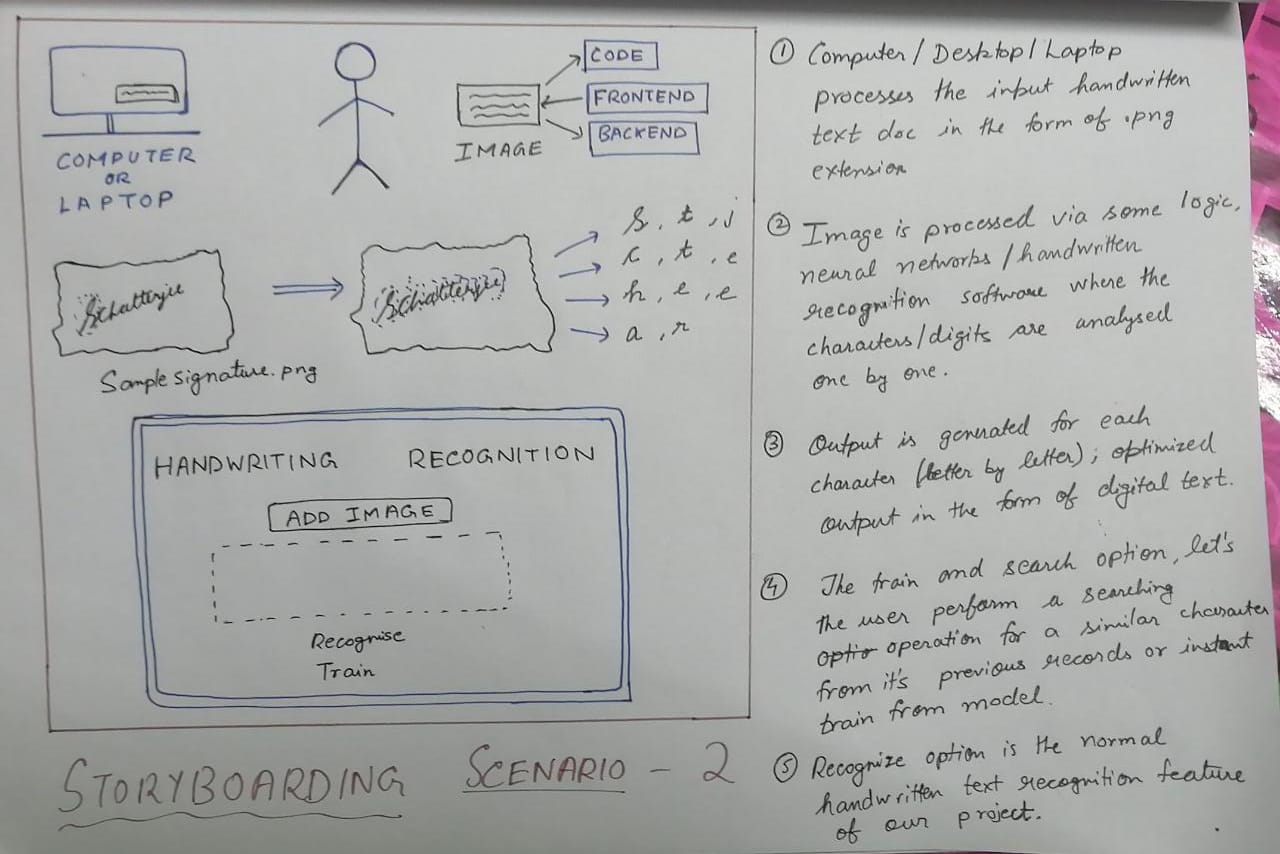 COMPUTER
OR
LAPTOP
IMAGE
CODE
FRONTEND
BACKEND
Schatterjee
Schatterjee
S, t, j
c, t, e
h, e, e
a, r
Sample signature.png
HANDWRITING RECOGNITION
ADD IMAGE
Recognise
Train
STORYBOARDING SCENARIO - 2
① Computer / Desktop / Laptop
processes the input handwritten
text doc in the form of .png
extension
② Image is processed via some logic,
neural networks / handwritten
recognition software where the
characters/digits are analysed
one by one.
③ Output is generated for each
character (letter by letter); optimized
output in the form of digital text.
④ The train and search option, let's
the user perform a searching
optio operation for a similar character
from it's previous records or instant
train from model.
⑤ Recognize option is the normal
handwritten text recognition feature
of our project.